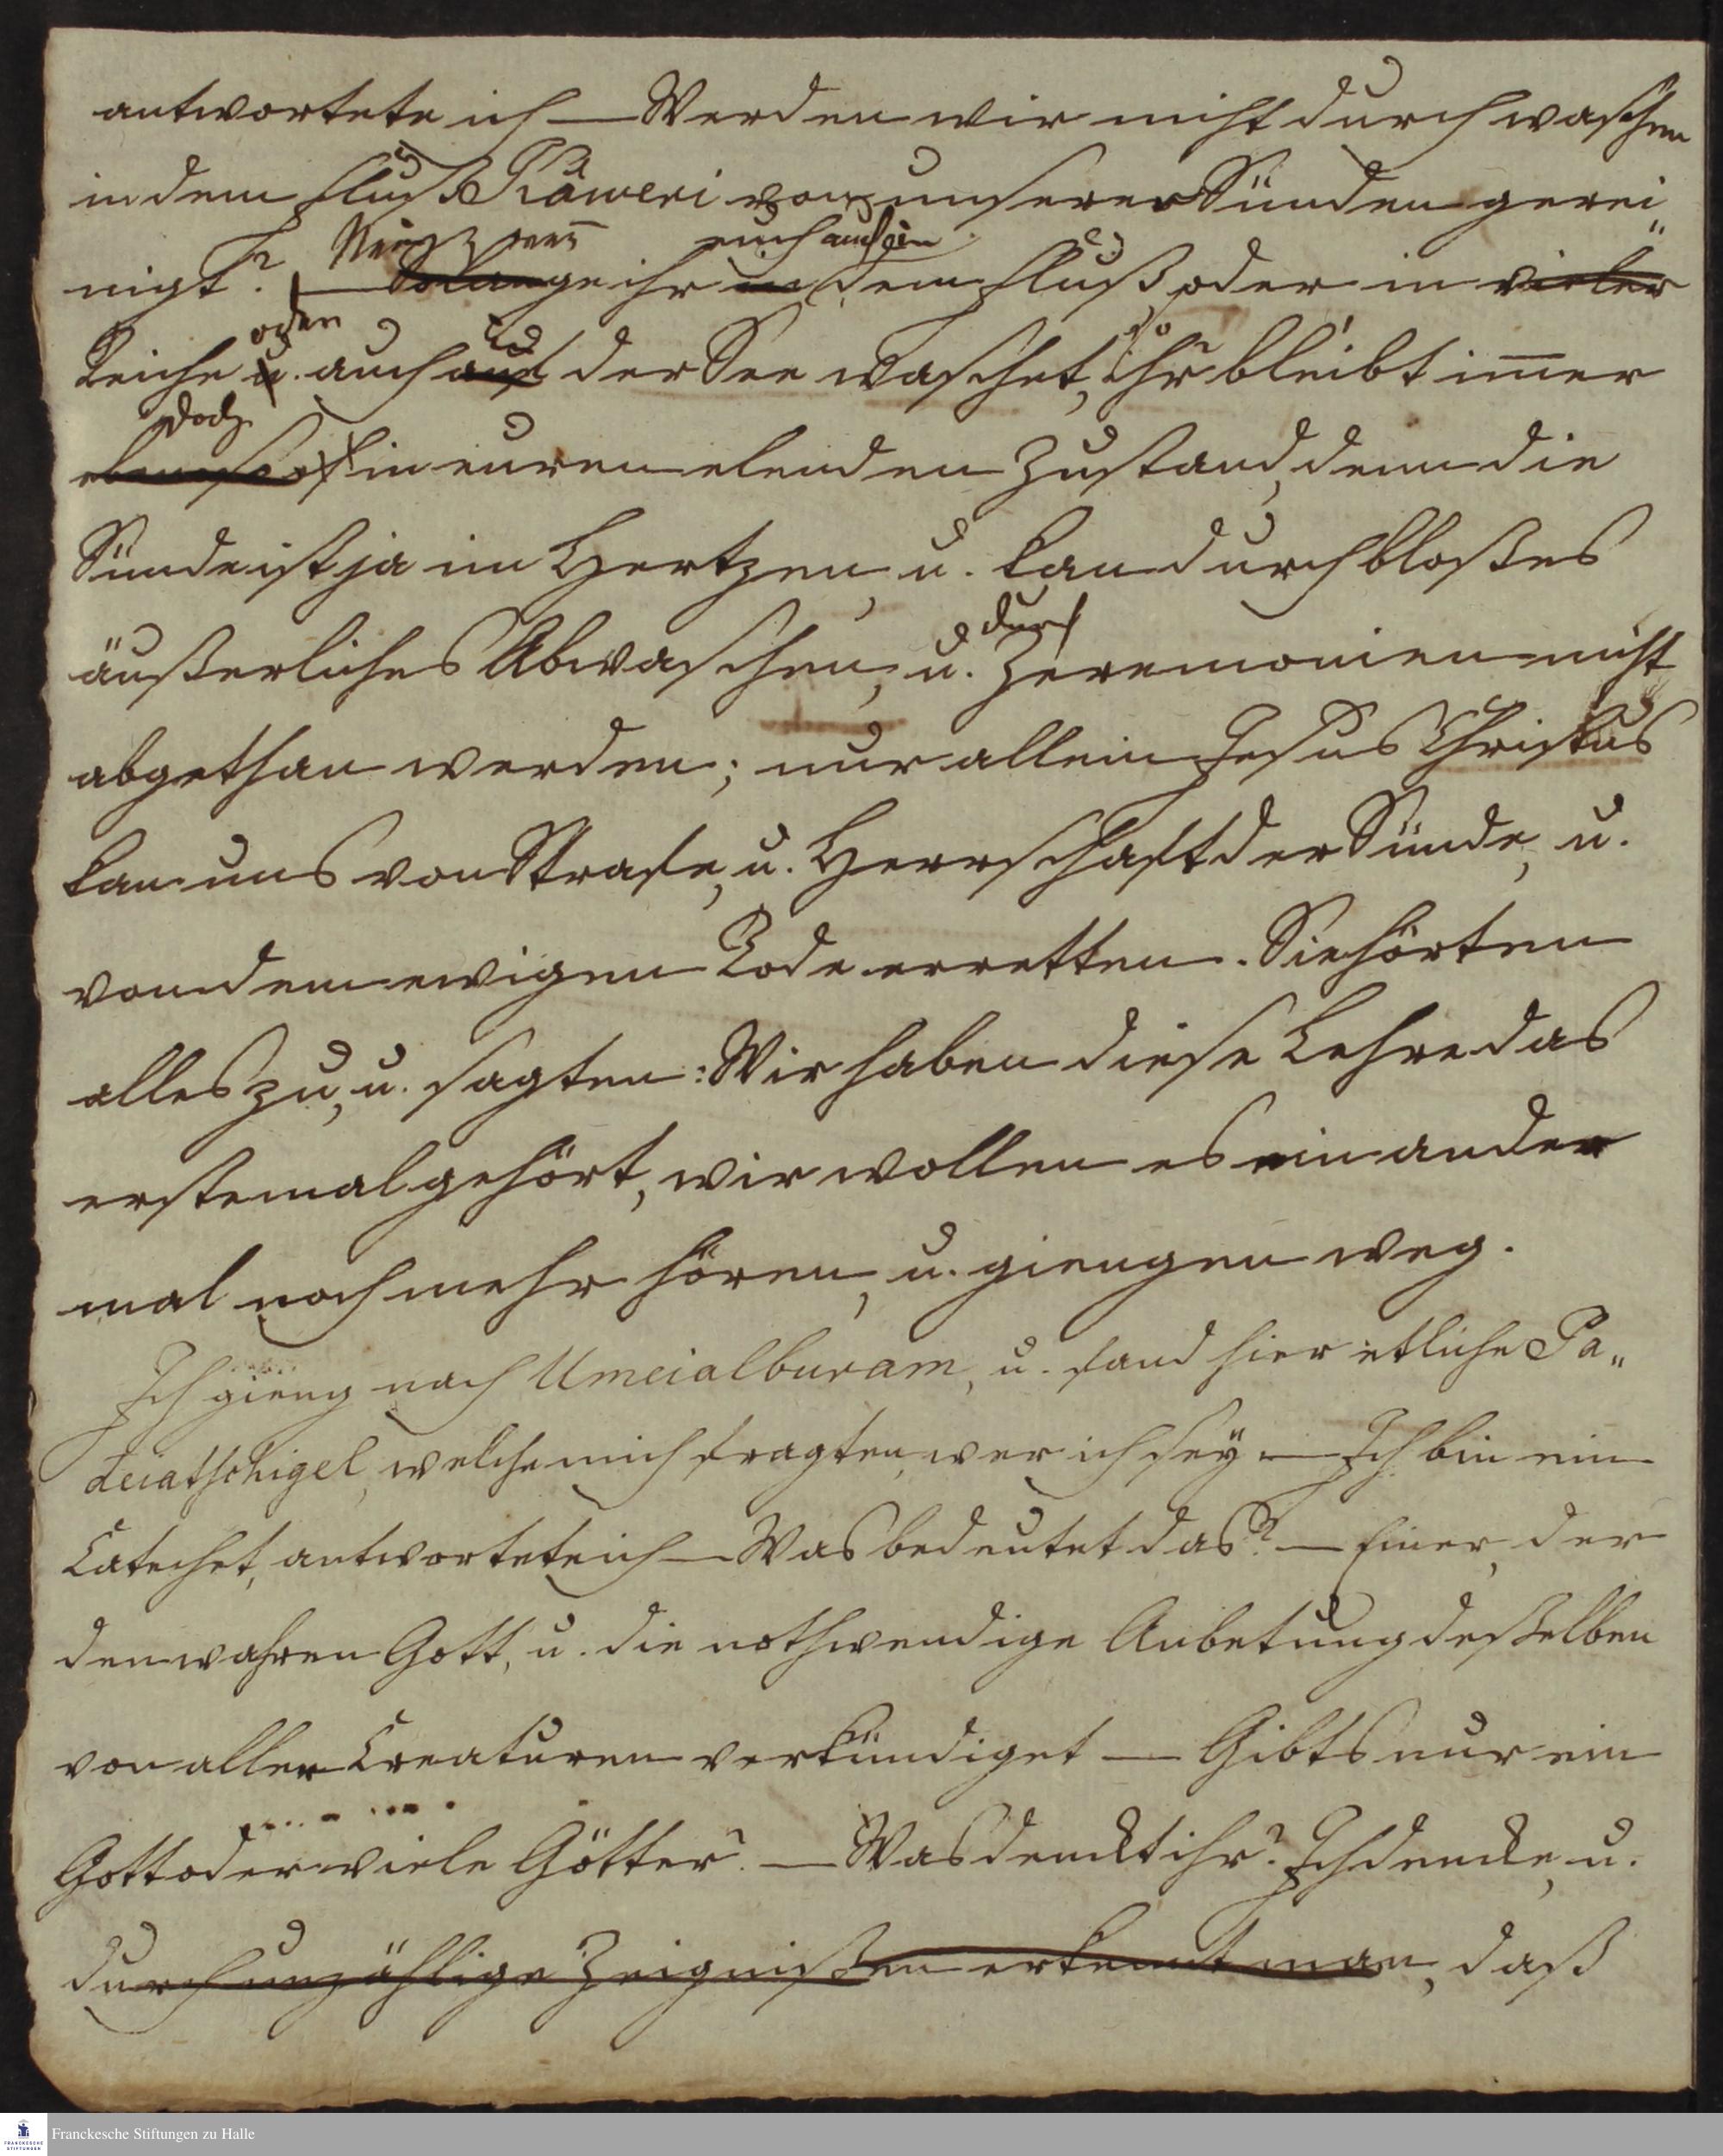 antwortete ich — Werden wir nicht durch waschen
in dem Fluß Káweri von unserer Sünden gerei„
nigt? — Nein, wenn Solange ihr in euch auch in dem Fluß, oder in vieler
Teiche oder u. auch auf der See waschet, so Ihr bleibt im̄er
doch ebenso oft in euren elenden Zustand, denn die
Sünde ist ja im Hertzen, u. kan durch bloßes
äußerliches Abwaschen, u. durch Zeremonien nicht
abgethan werden; nur allein Jesus Christus
kan uns von Strafe, u. Herrschaft der Sünde, u.
von dem ewigen Tode erretten. Sie hörten
alles zu, u. sagten: Wir haben diese Lehre das
erstemal gehört, wir wollen es ein ander
mal noch mehr hören, u. giengen weg.
Ich gieng nach Umeialburam, u. fand hier etliche Pa„
deiatschigel, welche mich fragten, wer ich sey — Ich bin ein
Catechet, antwortete ich — Was bedeutet das? — Einer, der
den wahren Gott, u. die nothwendige Anbetung deßelben
von allen Creaturen verkündiget — Gibts nur ein
Gott oder viele Götter? — Was denckt ihr? Ich dencke, u.
durch unzählige Zeignißen erkennt man, daß
Franckesche Stiftungen zu Halle
FRANCKESCHE
STIFTUNGEN